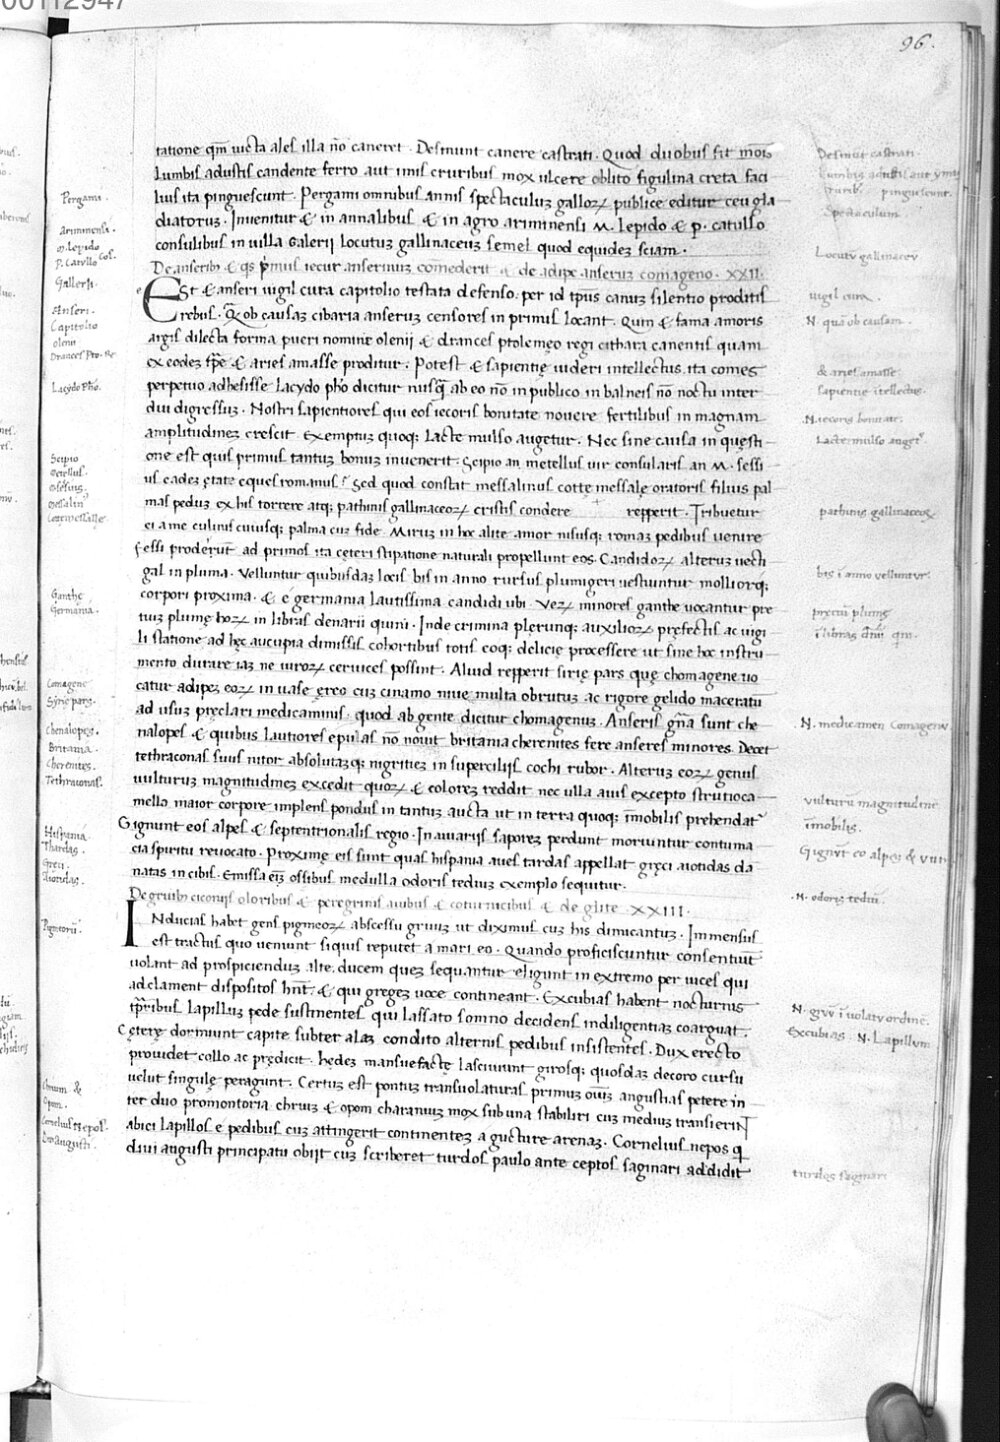 00112947
96.
tatione qm̄ victa ales illa nō caneret. Desinunt canere castrati. Quod duobus fit mōis
Lumbis adustis candente ferro aut imis cruribus mox ulcere oblito figulina creta faci
lius ita pinguescunt. Pergami omnibus annis spectaculuꝫ galloꝝ publice editur ceu gla
diatoruꝫ. Invenitur & in annalibus & in agro ariminensi M. Lepido & p. catullo
consulibus in villa Galerii locutus gallinaceus semel quod equideꝫ sciam.
De anserib; & qs p̄mus iecur anserinuꝫ comederit & de adipe anseruꝫ comageno. XXII.
Est & anseri vigil cura capitolio testata defenso: per id tp̄us canuꝫ silentio proditis
rebus. Qāob causaꝫ cibaria anseruꝫ censores in primis locant. Quin & fama amoris
argis dilecta forma pueri nomine olenij & drances ptolemęo regi cithara canentis quam
ex eodeꝫ tp̄e & aries amasse proditur. Potest & sapientię videri intellectus. ita comes
perpetuo adhesisse Lacydo pho dicitur nusq̄ ab eo nō in publico in balneis nō noctu inter
diu digressus. Nostri sapientiores qui eos iecoris bonitate novere fertilibus in magnam
amplitudineꝫ crescit. Exemptuꝫ quoq; lacte mulso augetur. Nec sine causa in questi
one est quis primus tantuꝫ bonuꝫ invenerit. Scipio an metellus vir consularis an M. sessi
us eadeꝫ ętate eques romanus. Sed quod constat messalinus cottę messalę oratoris filius pal
mas peduꝫ ex his torrere atq; pathinis gallinaceoꝝ cristis condere repperit. Tribuetur
ei a me culinis cuiusq; palma cuꝫ fide. Miruꝫ in hoc alite amor nisusq; romaꝫ pedibus venire
fessi proderūt ad primos ita cęteri stipatione naturali propellunt eos. Candidoꝝ alteruꝫ vecti
gal in pluma. Velluntur quibusdaꝫ locis bis in anno rursus plumigeri vestiuntur molliorq;
corpori proxima. & e germania lautissima candidi ubi. Veꝝ minores ganthe vocantur pre
tiuꝫ plumę hoꝝ in libras denarii quini. Inde crimina plerunq; auxilioꝝ pręfectis ac vigi
li statione ad hęc aucupia dimissis cohortibus totis eoq; delicię processere ut sine hoc instru
mento durare iaꝫ ne viroꝝ cervices possint. Aliud repperit sirię pars quę chomagene vo
catur adipeꝫ eoꝝ in vase ęreo cuꝫ cinamo nive multa obrutuꝫ ac rigore gelido maceratū
ad usuꝫ pręclari medicaminis. quod ab gente dicitur chomagenuꝫ. Anseris gn̄a sunt che
nalopes & quibus lautiores epulas nō novit britania cherenites fere anseres minores. Decet
tethraonas suus nitor absolutaꝫq; nigritieꝫ in supercilijs cochi rubor. Alteruꝫ eoꝝ genus
vulturuꝫ magnitudineꝫ excedit quoꝝ & coloreꝫ reddit nec ulla avis excepto strutioca
mello maior corpore implens pondus in tantuꝫ aucta ut in terra quoq; īmobilis prehendat᷑
Gignunt eos alpes & septentrionalis regio. In avarijs saporeꝫ perdunt moriuntur contuma
cia spiritu revocato. Proximę eis sunt quas hispania aves tardas appellat gręci avotidas da
natas in cibis. Emissa eīꝫ ossibus medulla odoris tediuꝫ exemplo sequitur.
De gruib; ciconijs oloribus & peregrinis avibus & coturnicibus & de glite XXIII.
Inducias habet gens pigmeoꝝ abscessu gruuꝫ ut diximus cuꝫ his dimicantuꝫ. Immensus
est tractus quo veniunt siquis reputet a mari eo. Quando proficiscuntur consentiūt
volant ad prospiciendus alte, ducem queꝫ sequantur eligunt in extremo per vices qui
adclament dispositos hn̄t. & qui gregeꝫ voce contineant. Excubias habent nocturnis
tp̄ribus lapilluꝫ pede sustinentes qui lassato somno decidens indiligentiaꝫ coarguat.
Cęterę dormiunt capite subter alaꝫ condito alternis pedibus insistentes. Dux erecto
providet collo ac prędicit. hędeꝫ mansuefactę lasciviunt girosq; quosdaꝫ decoro cursu
velut singulę peragunt. Certuꝫ est pontuꝫ transvolaturas primuꝫ oīuꝫ angustias petere in
ter duo promontoria chruiꝫ & opom charanviꝫ mox suburra stabiliri cuꝫ mediuꝫ transierit
abici lapillos e pedibus cuꝫ attingerit continenteꝫ a gucture arenaꝫ. Cornelius nepos q̄
divi augusti principatu obijt cuꝫ scriberet turdos paulo ante ceptos saginari addidit
Pergami.
Ariminensi.
M. Lepido
P. Catullo Cos.
Gallerii.
Anseri.
Capitolio
olenii
Drances Pto. Re
Lacydo Pho.
Scipio
Metellus.
Messalin9
Ganthe
Germania.
Comagene
Syrię pars.
Chenalopes.
Britania.
Cherenites.
Tethraonas.
Hispania
Thardas.
Greci
Avotidas.
Pigmeorū.
Chruim &
Opom.
Cornelius nepos.
Divi augusti.
Desinūt castrati.
Lumbis adusti aut ymis
crurib. pinguescunt.
Spectaculum.
Locut9 gallinaceus
vigil cura.
N. quā ob causam.
& aries amasse
sapientię itellectus.
N. iecoris bonitate.
Lacte mulso auget᷑.
pathinis gallinaceoꝝ
bis i anno velluntur.
preciū plumę
i libras dn̄ii qni.
N. medicamen Comagenū
vulturū magnitudine
īmobilis.
Gignūt eo alpes &
N. odoris tediū.
N. gruū i volatu ordinē.
Excubias. N. Lapillum
turdos saginari